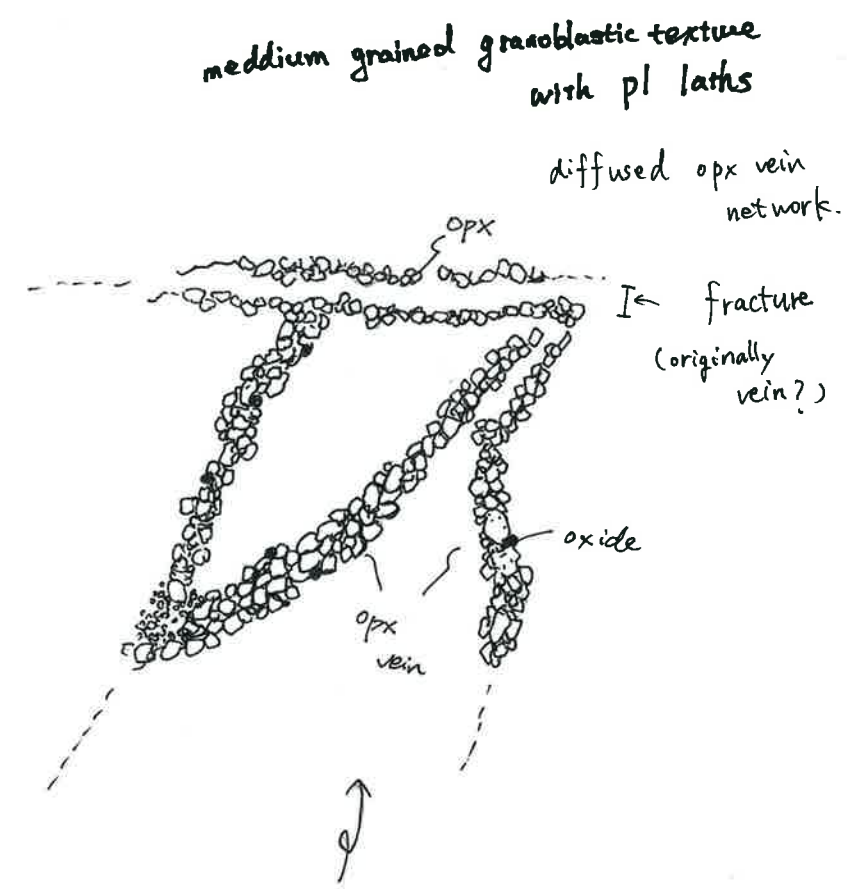 meddium grained granoblastic texture
with pl laths
diffused opx vein
network.
opx
fracture
(originally
vein?)
oxide
opx
vein